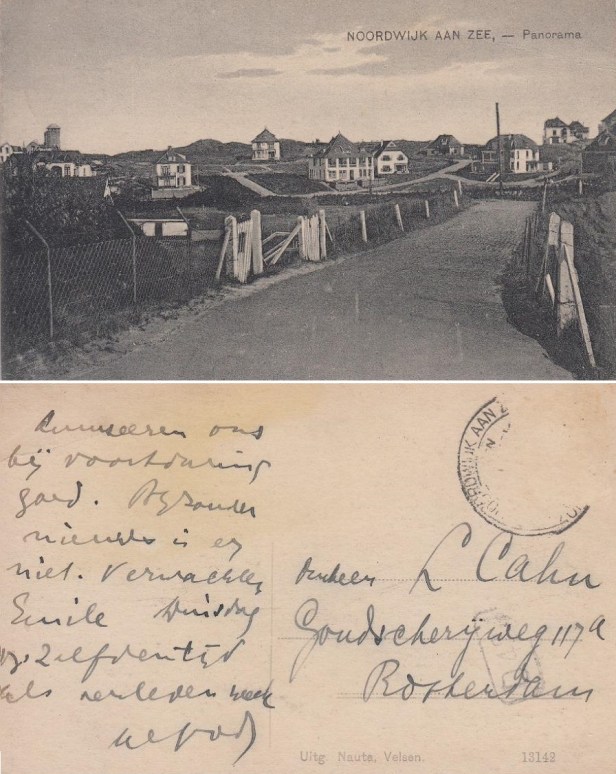 NOORDWIJK AAN ZEE, — Panorama
Amuseeren ons
bij voortduring
goed. Bijzonder
nieuws is er
niet. Verwachten
Emile Dinsdag
zelfden tijd
als verleden week
NOORDWIJK AAN Z
L Cahn
Goudscherijweg 117a
Rotterdam
Uitg. Nauta, Velsen.
13142